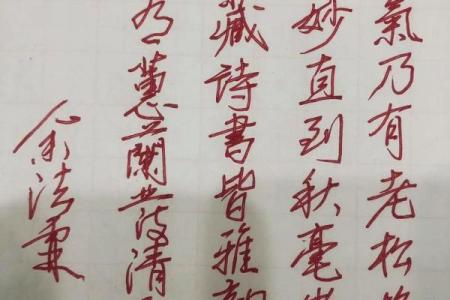 氣乃有老松
妙直到秋毫
藏詩書皆雅
為蕙蘭並清
余法秉